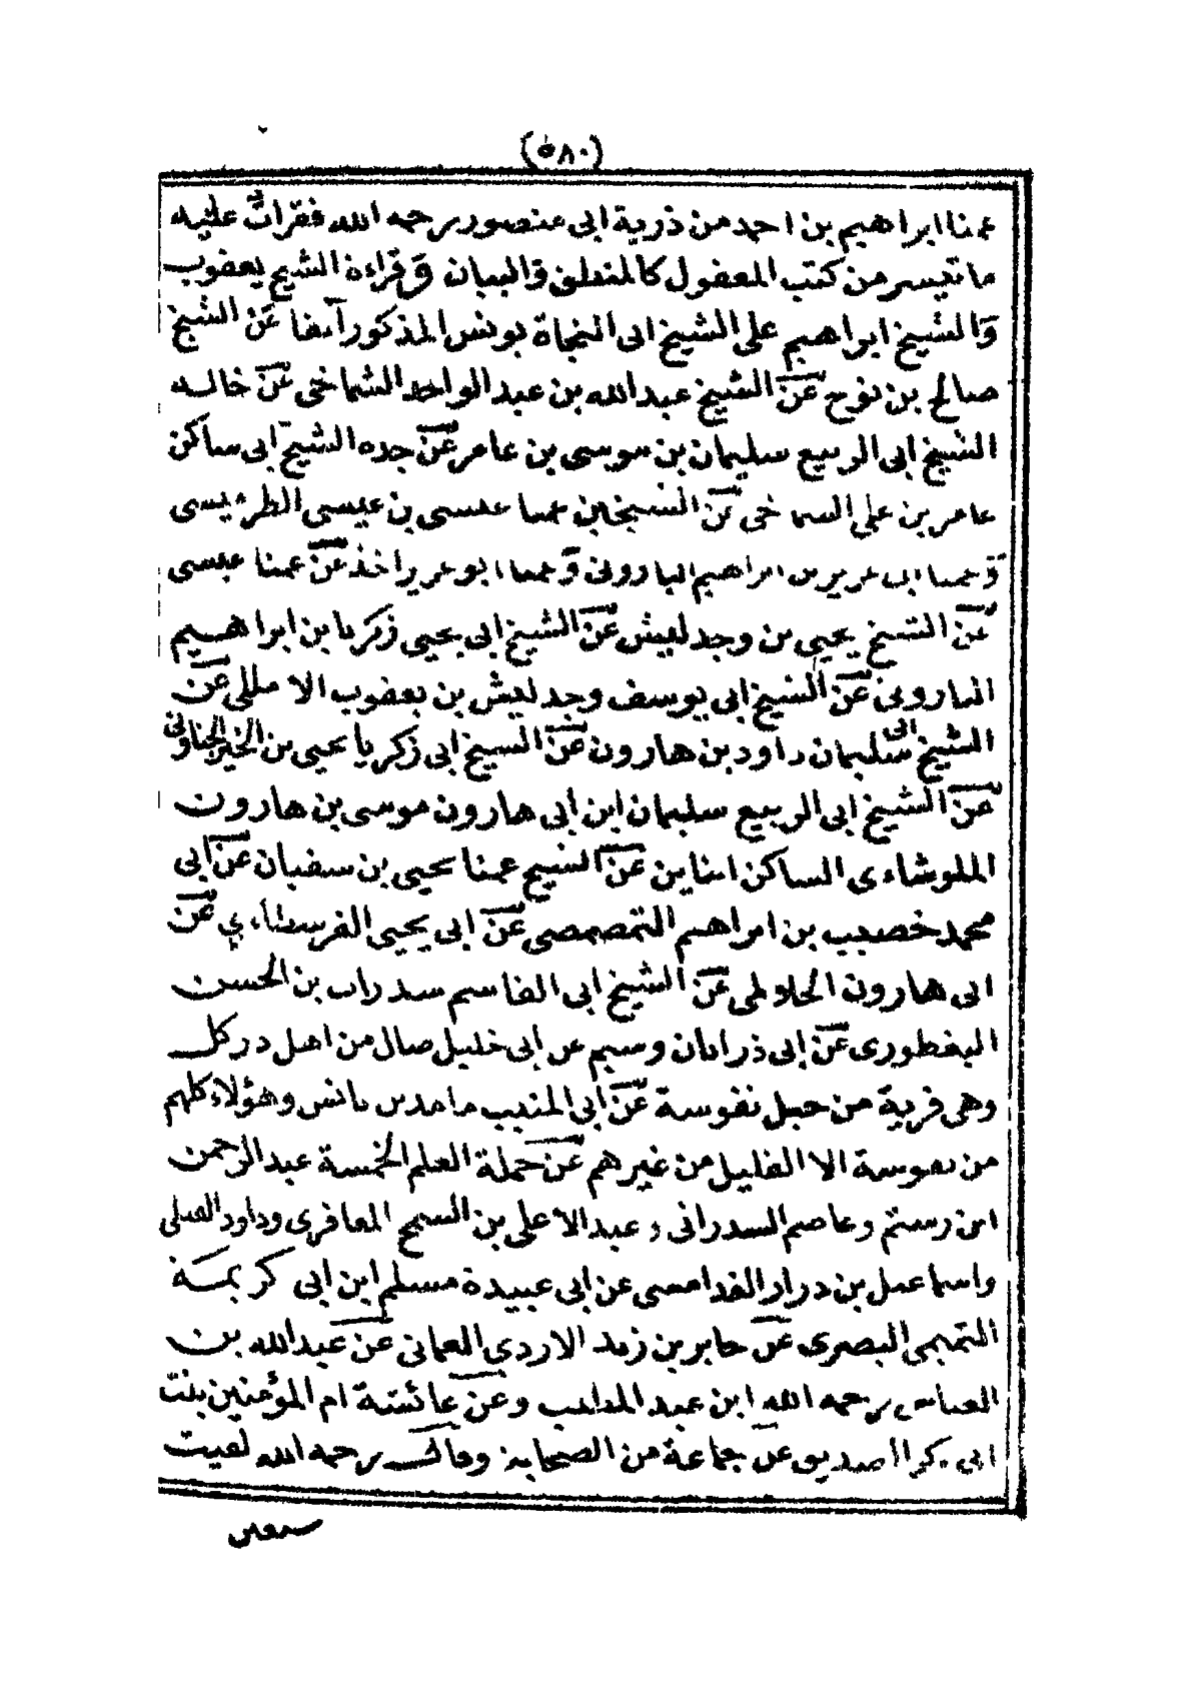 (٥٨٠)
عمنا ابراهيم بن احمد من ذرية ابى منصور رحمه الله فقرات عليه
ما تيسر من كتب المعقول كالمنطق والبيان وقراءة الشيخ يعقوب
والشيخ ابراهيم على الشيخ ابى النجاة يونس المذكور آنفا عن الشيخ
صالح بن نوح عن الشيخ عبد الله بن عبد الواحد الشماخى عن خاله
الشيخ ابى الربيع سليمان بن موسى بن عامر عن جده الشيخ ابى ساكن
عامر بن على الشماخى عن الشيخين عمنا عيسى بن عيسى الطرميسى
وعمنا ابى عزيز بن ابراهيم البارونى وعمنا ابو عزيز اخذ عن عمنا عيسى
عن الشيخ يحيى بن وجدليش عن الشيخ ابى يحيى زكريا بن ابراهيم
البارونى عن الشيخ ابى يوسف وجدليش بن يعقوب الامللى عن
الشيخ ابى سليمان داود بن هارون عن الشيخ ابى زكريا يحيى بن الخير الجناونى
عن الشيخ ابى الربيع سليمان ابن ابى هارون موسى بن هارون
الملوشاءى الساكن ابناين عن الشيخ عمنا يحيى بن سفيان عن ابى
محمد خصيب بن ابراهيم التمصمصى عن ابى يحيى الفرسطاءي عن
ابى هارون الجلالمى عن الشيخ ابى القاسم سدرات بن الحسن
البغطورى عن ابى ذر ابان وسيم عن ابى خليل صال من اهل دركل
وهى قرية من جبل نفوسة عن ابى المنيب مامد بن يانس وهؤلاء كلهم
من نفوسة الا القليل من غيرهم عن حملة العلم الخمسة عبد الرحمن
ابن رستم وعاصم السدراتى وعبد الاعلى بن السمح المعافرى وداود القبلى
واسماعيل بن درار الغدامسى عن ابى عبيدة مسلم ابن ابى كريمة
التميمى البصرى عن جابر بن زيد الازدى العمانى عن عبد الله بن
العباس رحمه الله ابن عبد المطلب وعن عائشة ام المؤمنين بنت
ابى بكر الصديق عن جماعة من الصحابة وقال رحمه الله لقيت
سبعين